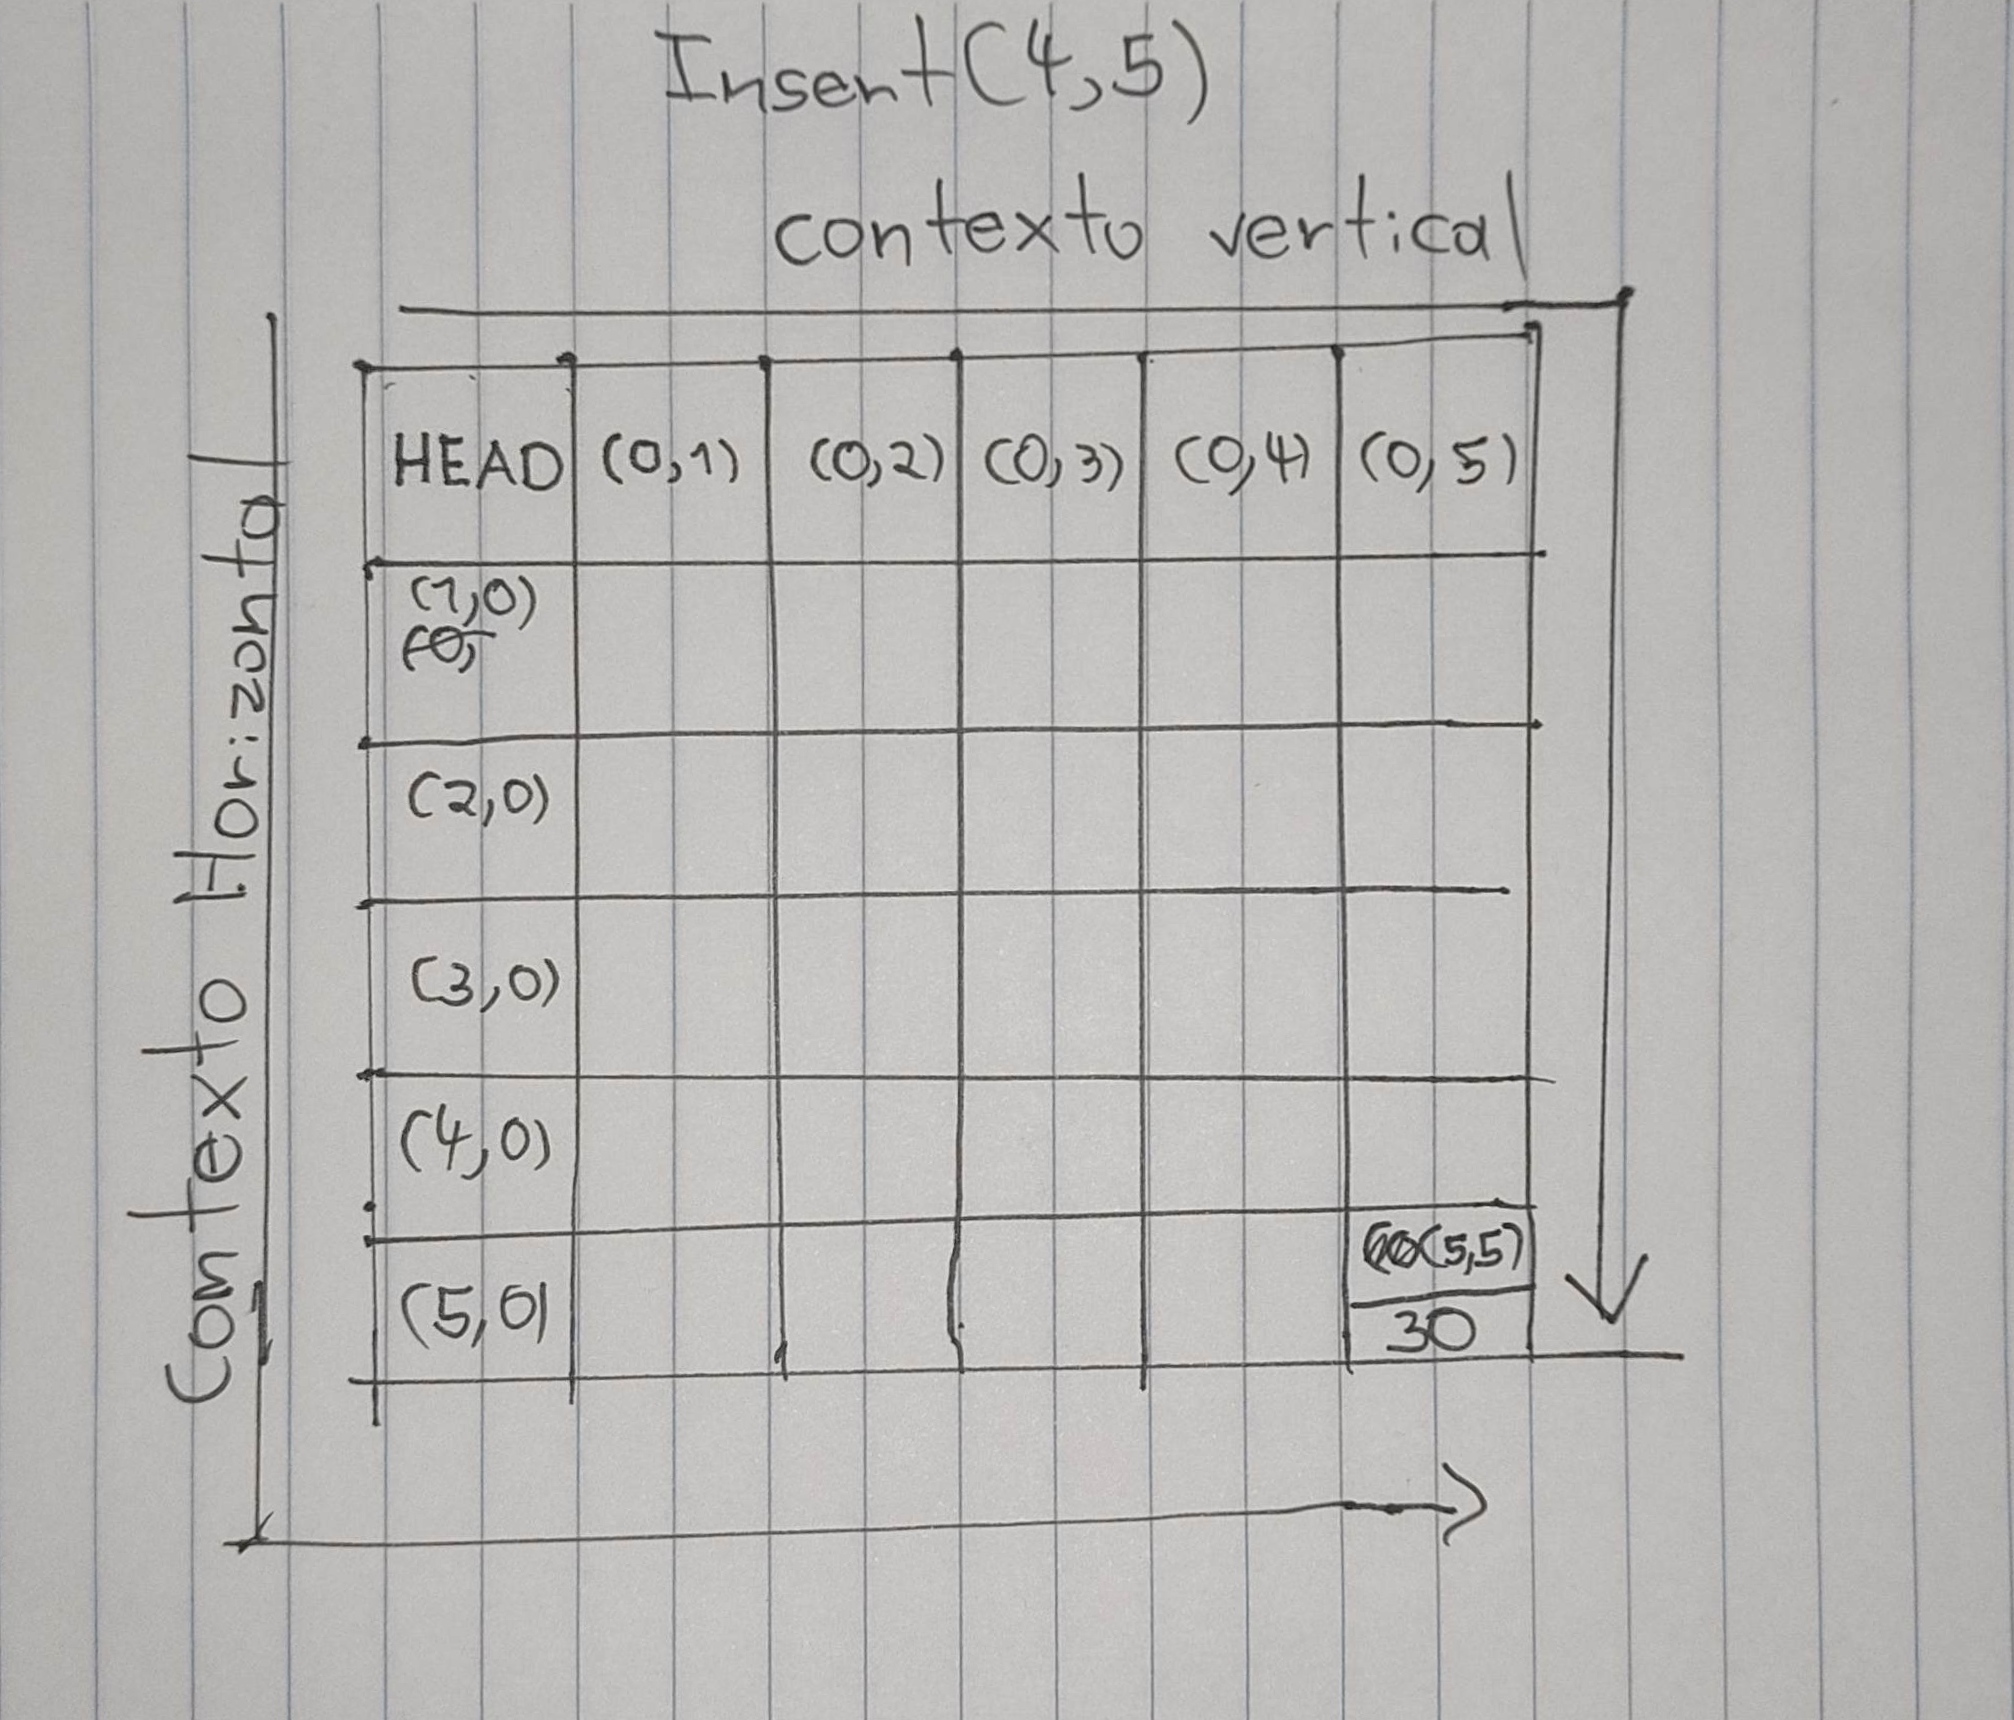 Insert(4,5)
contexto vertical
Contexto Horizontal
HEAD (0,1) (0,2) (0,3) (0,4) (0,5)
(1,0)
(0,
(2,0)
(3,0)
(4,0)
(5,0) (5,5)
30